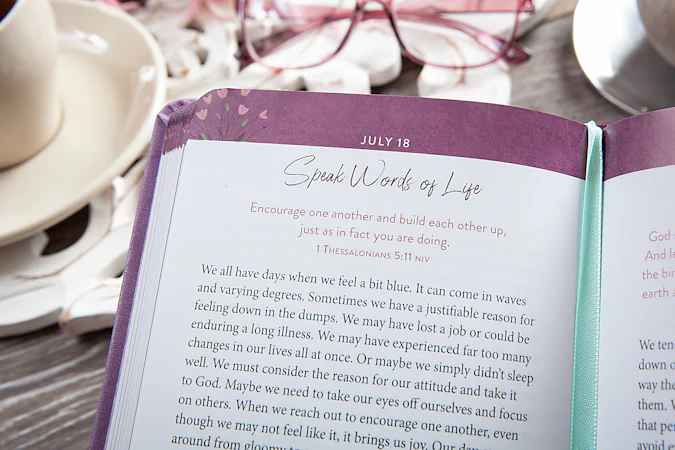 JULY 18
Speak Words of Life
Encourage one another and build each other up,
just as in fact you are doing.
1 THESSALONIANS 5:11 NIV
We all have days when we feel a bit blue. It can come in waves
and varying degrees. Sometimes we have a justifiable reason for
feeling down in the dumps. We may have lost a job or could be
enduring a long illness. We may have experienced far too many
changes in our lives all at once. Or maybe we simply didn't sleep
well. We must consider the reason for our attitude and take it
to God. Maybe we need to take our eyes off ourselves and focus
on others. When we reach out to encourage one another, even
though we may not feel like it, it brings us joy. Our day
around from gloomy
God
And le
the bir
earth a
We ten
down o
way the
them. W
that per
avoid e